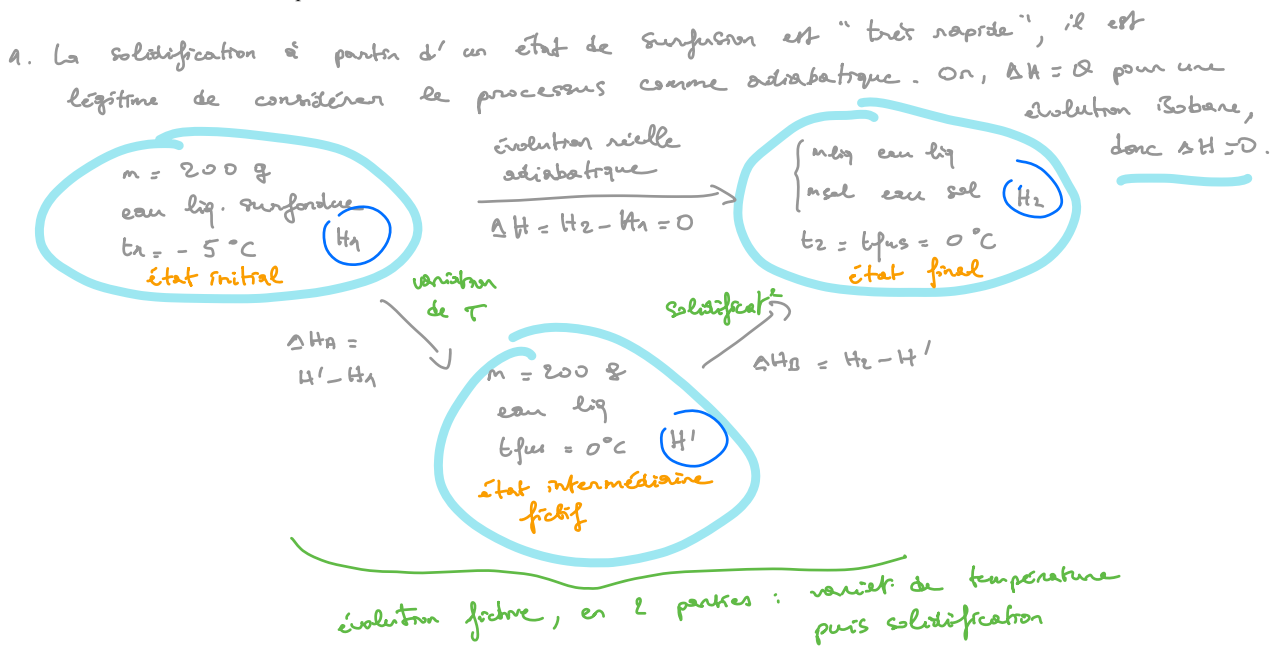 1. La solidification à partir d'un état de surfusion est "très rapide", il est
légitime de considérer le processus comme adiabatique. Or, ΔH = Q pour une
évolution isobare,
donc ΔH = 0.
m = 200 g
eau liq. surfondue
t1 = - 5 °C
H1
état initial
évolution réelle
adiabatique
ΔH = H2 - H1 = 0
mliq eau liq
msol eau sol
H2
t2 = tfus = 0 °C
état final
variation
de T
ΔHA =
H' - H1
solidificat°
ΔHB = H2 - H'
m = 200 g
eau liq
tfus = 0°C
H'
état intermédiaire
fictif
évolution fictive, en 2 parties : variat° de température
puis solidification